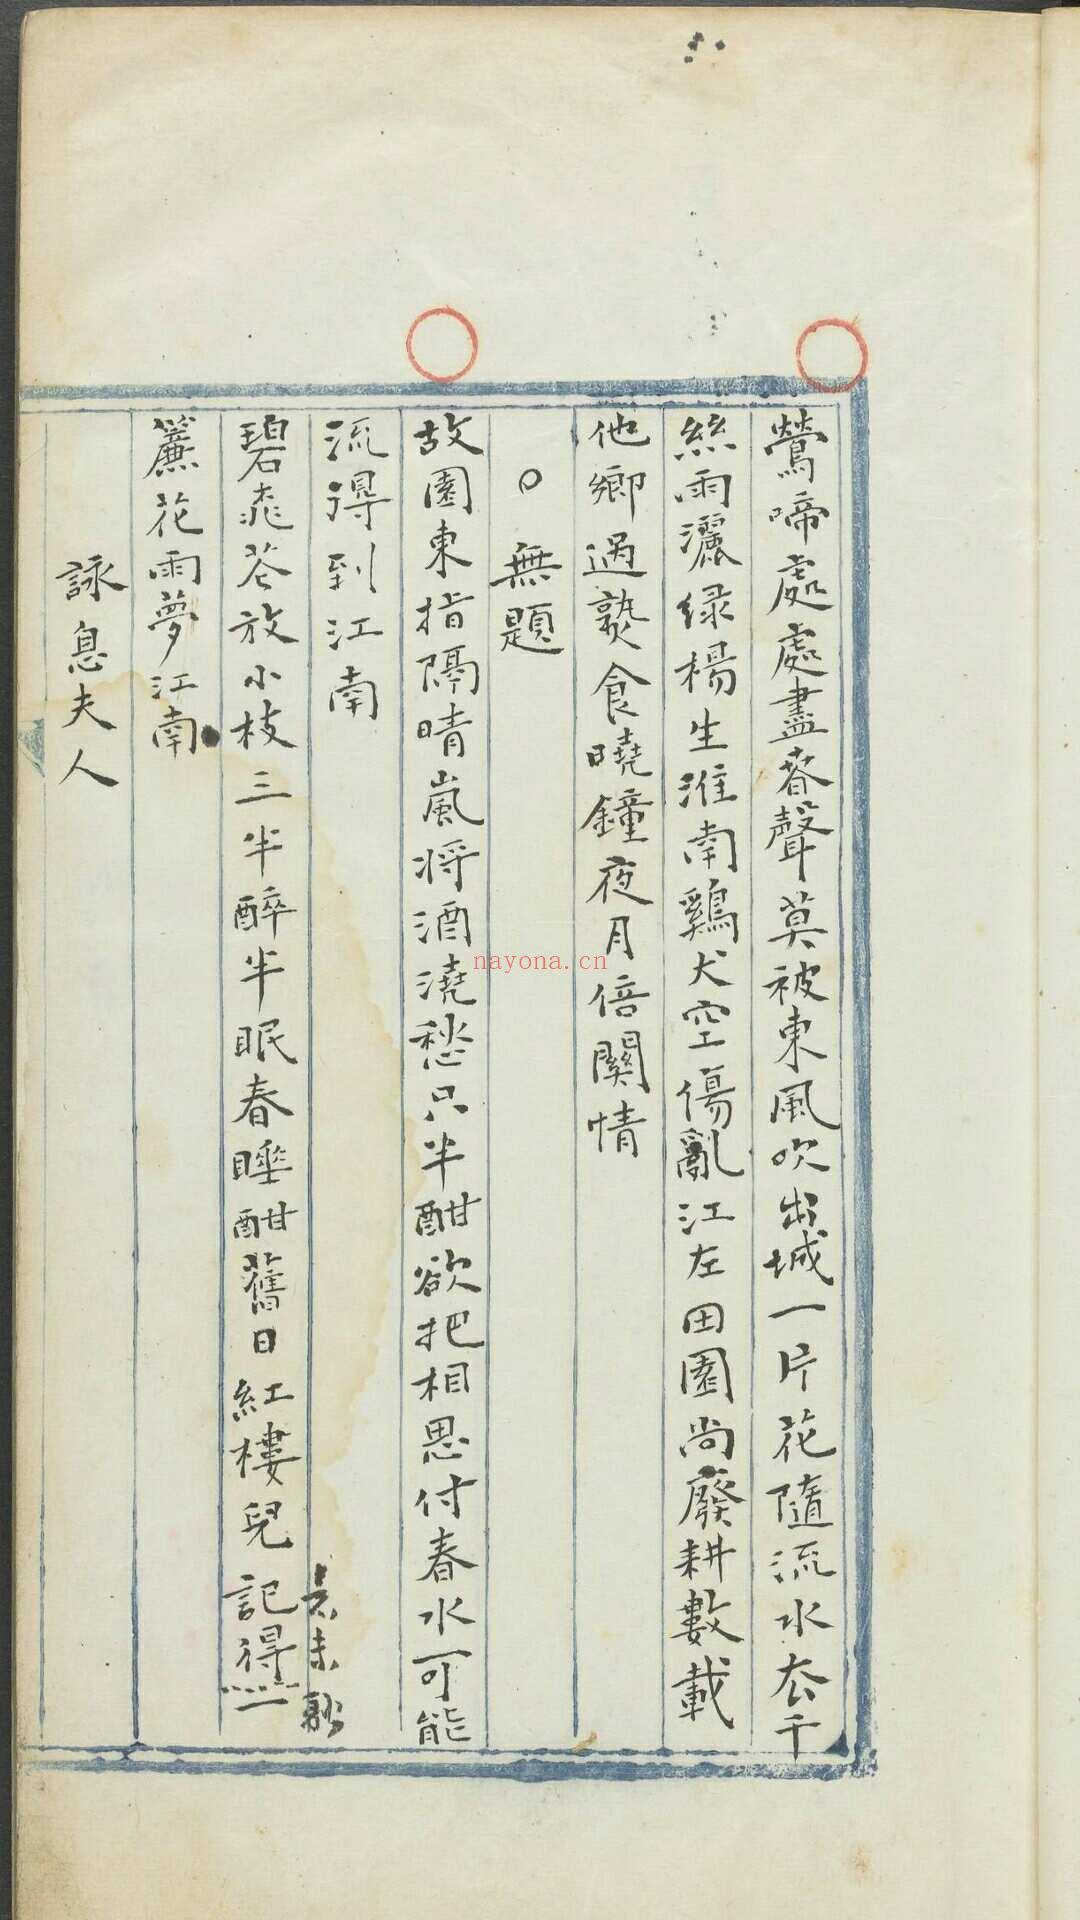 鶯啼處處盡春聲莫被東風吹出城一片花隨流水去千
絲雨灑緑楊生淮南鷄犬空傷亂江左田園尚廢耕數載
他鄉過熟食曉鐘夜月倍關情
○無題
故園東指隔晴嵐将酒澆愁只半酣欲把相思付春水可能
流得到江南
碧桃花放小枝三半醉半眠春睡酣舊日紅樓兒記得一
簾花雨夢江南
詠息夫人
nayona.cn